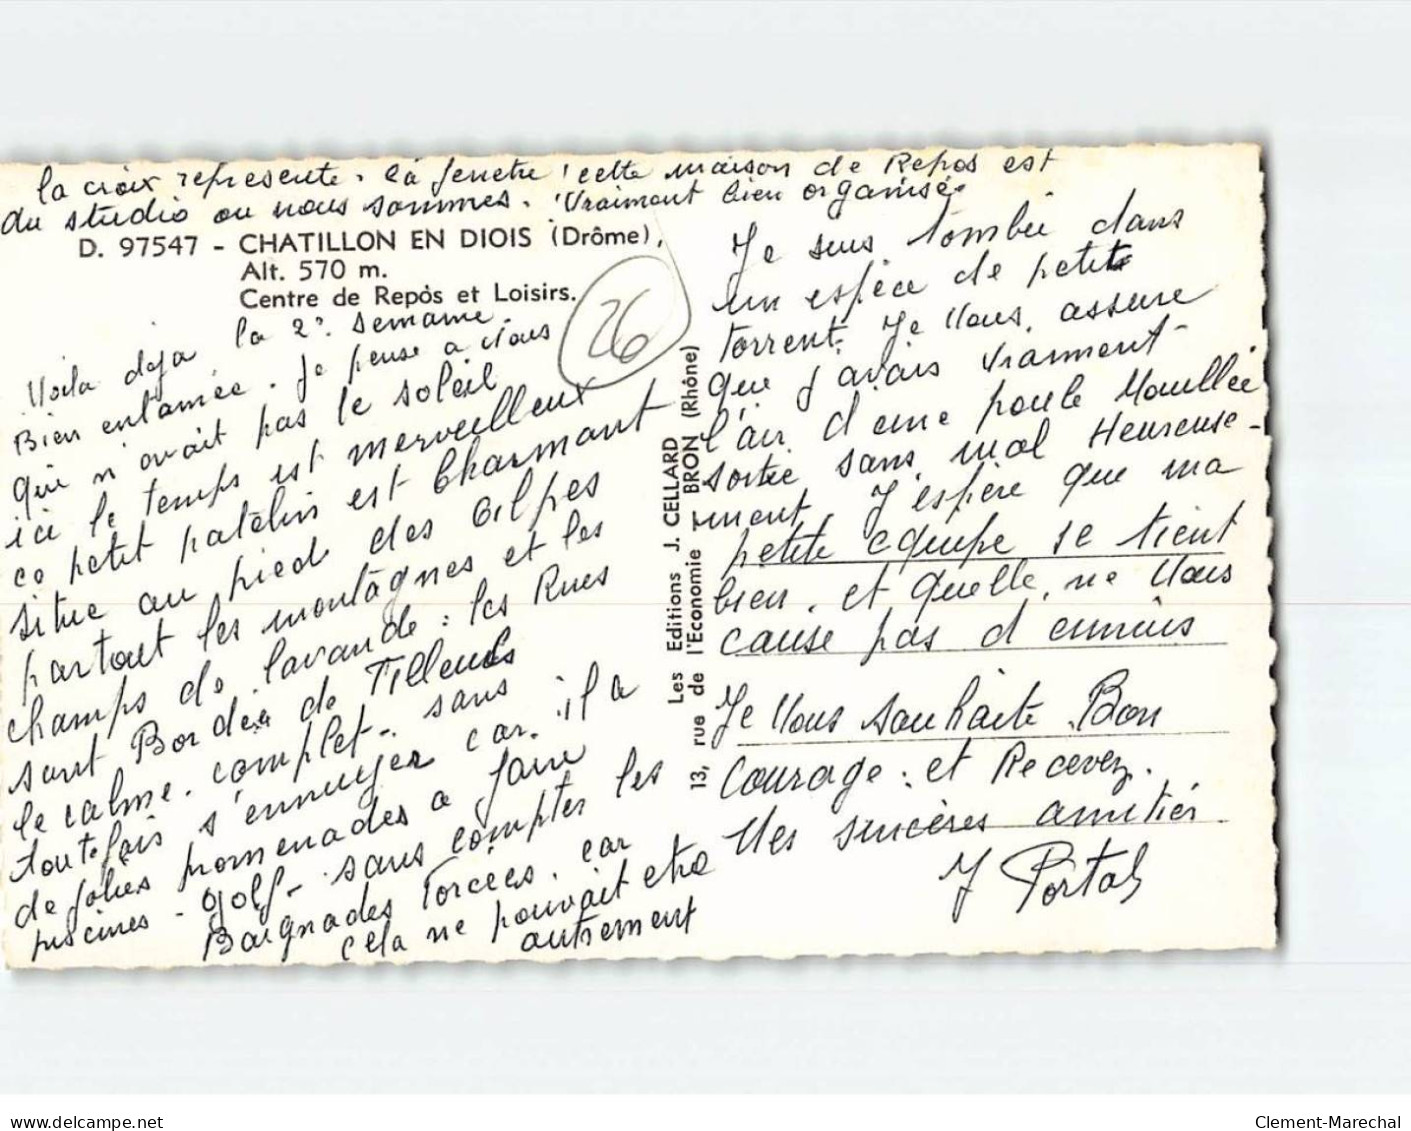 la croix represente. la fenetre cette maison de Repos est
du studio ou nous sommes. Vraiment bien organisé.
D. 97547 - CHATILLON EN DIOIS (Drôme),
Alt. 570 m.
Centre de Repos et Loisirs.
26
Voila deja la 2e semaine
Bien entamée. Je pense a vous
qui n'avait pas le soleil
ici le temps est merveilleux
ce petit patelin est charmant
situe au pied des Alpes
partout les montagnes et les
champs de lavande : les Rues
sont Bordée de Tilleuls
le calme. complet. sans
toutefois s'ennuyer car. il a
de jolies promenades a faire
piscines - golf - sans compter les
Baignades Forcées. car
cela ne pouvait etre
autrement
Les Editions J. CELLARD
13, rue de l'Economie - BRON (Rhône)
Je suis tombée dans
un espèce de petit
torrent. Je Vous, assure
que j'avais vraiment
l'air d'une poule Mouillée
sortie sans mal Heureuse-
ment. J'espère que ma
petite equipe se tient
bien. et quelle, ne Vous
cause pas d ennuis
Je Vous souhaite Bon
Courage. et Recevez.
Mes sincères amitiés
J Portal
delcampe.net
Clement-Marechal